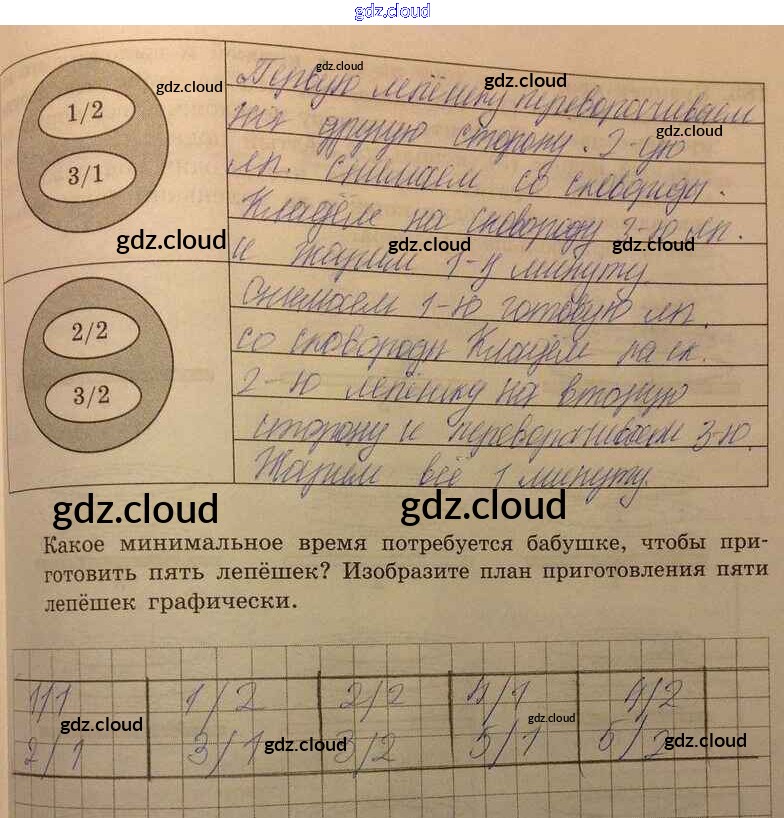 gdz.cloud
1/2
3/1
Первую лепёшку переворачиваем
на другую сторону. 2-ую
леп. снимаем со сковороды.
Кладём на сковороду 3-ю леп.
и жарим 1-у минуту
2/2
3/2
снимаем 1-ю готовую леп.
со сковороды Кладём на ск.
2-ю лепёшку на вторую
сторону и переворачиваем 3-ю.
Жарим всё 1 минуту.
Какое минимальное время потребуется бабушке, чтобы при-
готовить пять лепёшек? Изобразите план приготовления пяти
лепёшек графически.
1/1 1/2 2/2 4/1 4/2
2/1 3/1 3/2 5/1 5/2
gdz.cloud
gdz.cloud
gdz.cloud
gdz.cloud
gdz.cloud
gdz.cloud
gdz.cloud
gdz.cloud
gdz.cloud
gdz.cloud
gdz.cloud
gdz.cloud
gdz.cloud